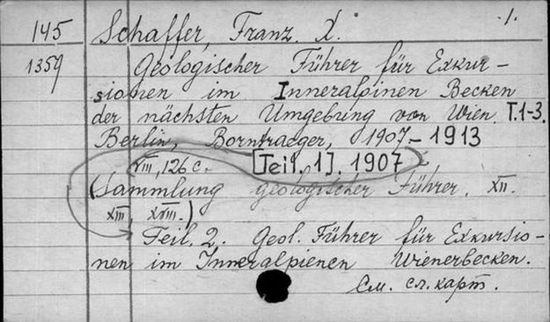 145 Schaffer, Franz. X. 1.
1359 Geologischer Führer für Exkur-
sionen im Inneralpinen Becken
der nächsten Umgebung von Wien. T.1-3.
Berlin, Borntraeger, 1907-1913
VIII, 126 c. [Teil. 1]. 1907
(Sammlung geologischer Führer. XII.
XIII, XVIII.)
Teil. 2. Geol. Führer für Exkursio-
nen im Inneralpienen Wienerbecken.
См. сл. карт.